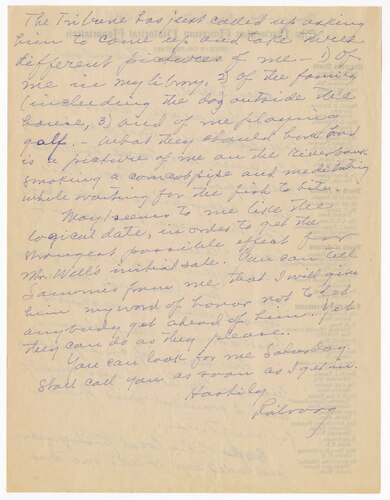 The Tribune has just called up asking
him to come up and take three
different pictures of me — 1) Of
me in my library, 2) of the family
(including the dog outside the
house, 3) and of me playing
golf. — What they should look for
is a picture of me on the riverbank
smoking a corncob pipe and meditating
while waiting for the fish to bite.
May 1 seems to me like the
logical date, in order to get the
strongest possible effect for
Mr. Wells' initial sale. You can tell
Sammis from me, that I will give
him my word of honor not to let
anybody get ahead of him. Yet
they can do as they please.
You can look for me Saturday.
Shall call you as soon as I get in.
Hastily